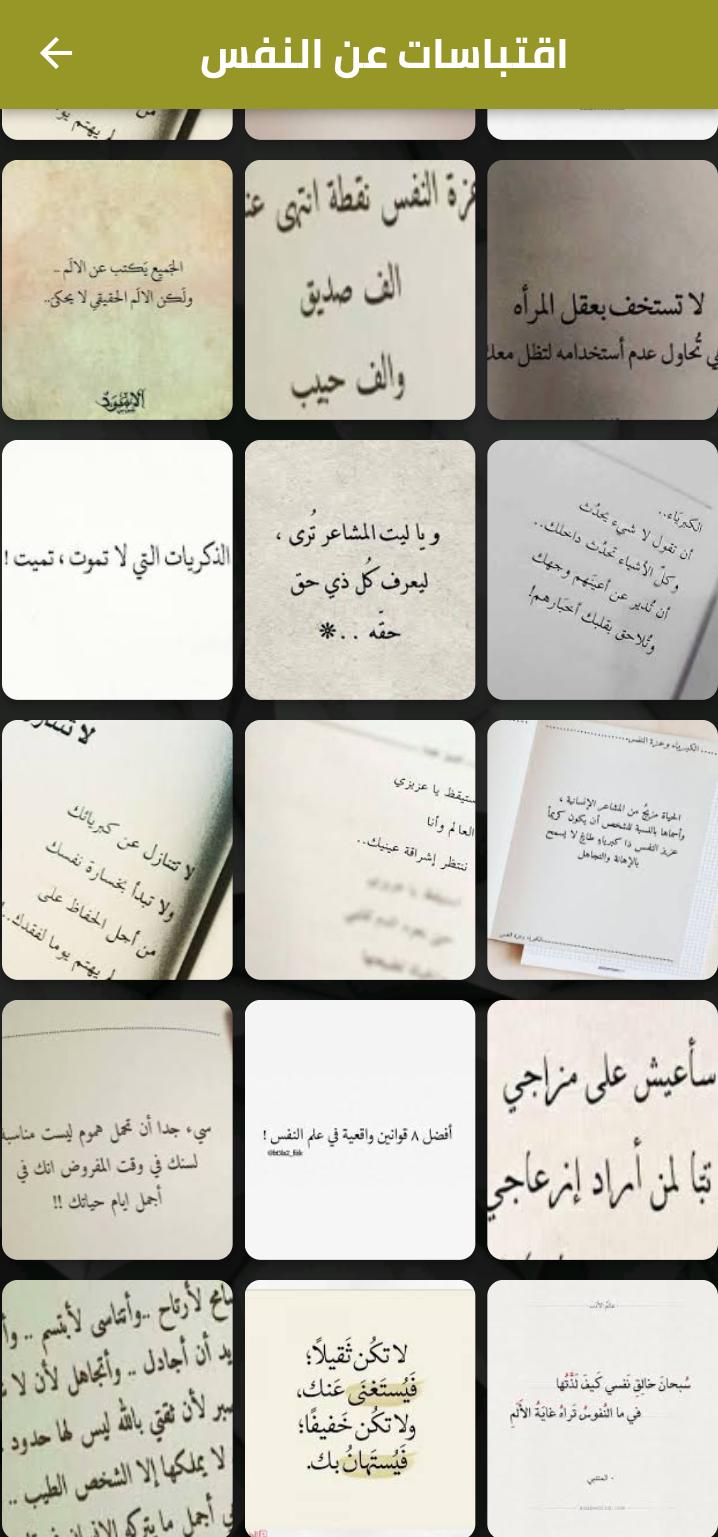 اقتباسات عن النفس
من
لا تستخف بعقل المرأه
تُحاول عدم أستخدامه لتظل معك
عزة النفس نقطة انتهى
الف صديق
والف حبيب
الجميع يَكتب عن الالَم ..
ولَكن الالَم الحقيقي لا يحكىَ..
الاسْوَدْ
الكبرياء..
أن تقول لا شيء يحدُث
وكلّ الأشياء تحدُث داخلك..
أن تُدير عن أعينهم وجهك
وتُلاحق بقلبك أخبَارهم!
و يا ليت المشاعر تُرى ،
ليعرف كُل ذي حق
حقّه . . *
الذكريات التي لا تموت ، تميت !
الكبرياء وعزة النفس
الحياة مزيجٌ من المشاعر الإنسانية ،
وأسماها بالنسبة للشخص أن يكون كريماً
عزيز النفس ذا كبرياءٍ طاغٍ لا يسمح
بالإهانة والتجاهل
الكبرياء وعزة النفس
ستيقظ يا عزيزي
العالم وأنا
ننتظر إشراقة عينيك..
لا تتنازل عن كبريائك
ولا تبدأ بخسارة نفسك
من أجل الحفاظ على
يهتم يوما لفقدك..!
سأعيش على مزاجي
تبّا لمن أراد إزعاجي
أفضل ٨ قوانين واقعية في علم النفس !
سيء جدا أن تحمل هموم ليست مناسبة
لسنك في وقت المفروض انك في
أجمل ايام حياتك !!
عالم الأدب
سُبحانَ خالِقِ نَفسي كَيفَ لَذَّتُها
في ما النُفوسُ تَراهُ غايَةُ الأَلَمِ
- المتنبي
لا تكُن ثَقيلاً؛
فَيُستَغنَى عَنك،
ولا تكُن خَفيفًا؛
فَيُستَهانُ بك.
لأرتاح ..وأتناسى لأبتسم ..
أن أجادل .. وأتجاهل لأن لا
لأن ثقتي بالله ليس لها حدود
لا يملكها إلا الشخص الطيب ..
أجمل ما يتركه الإنسان